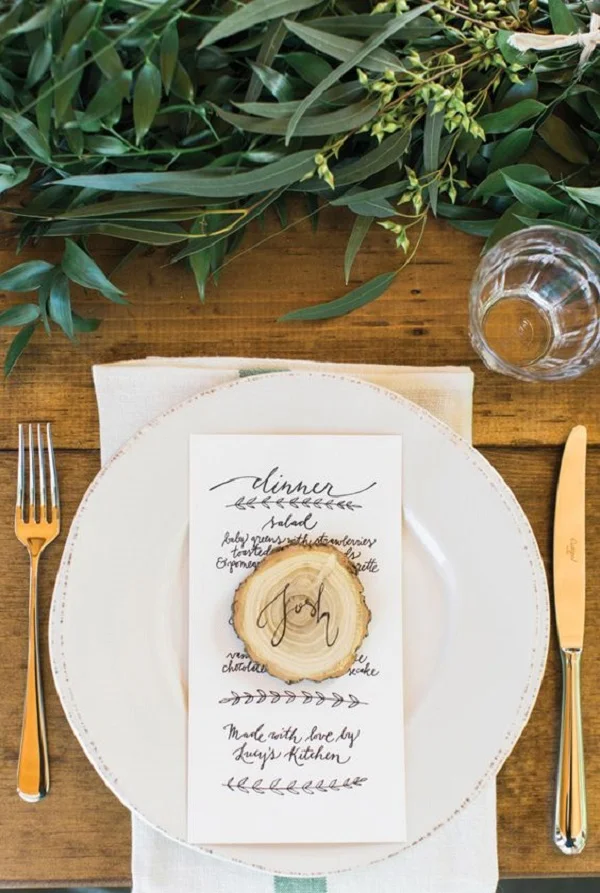 dinner
salad
baby greens with strawberries
toasted
Josh
chocolate
Made with love by
Lucy's Kitchen